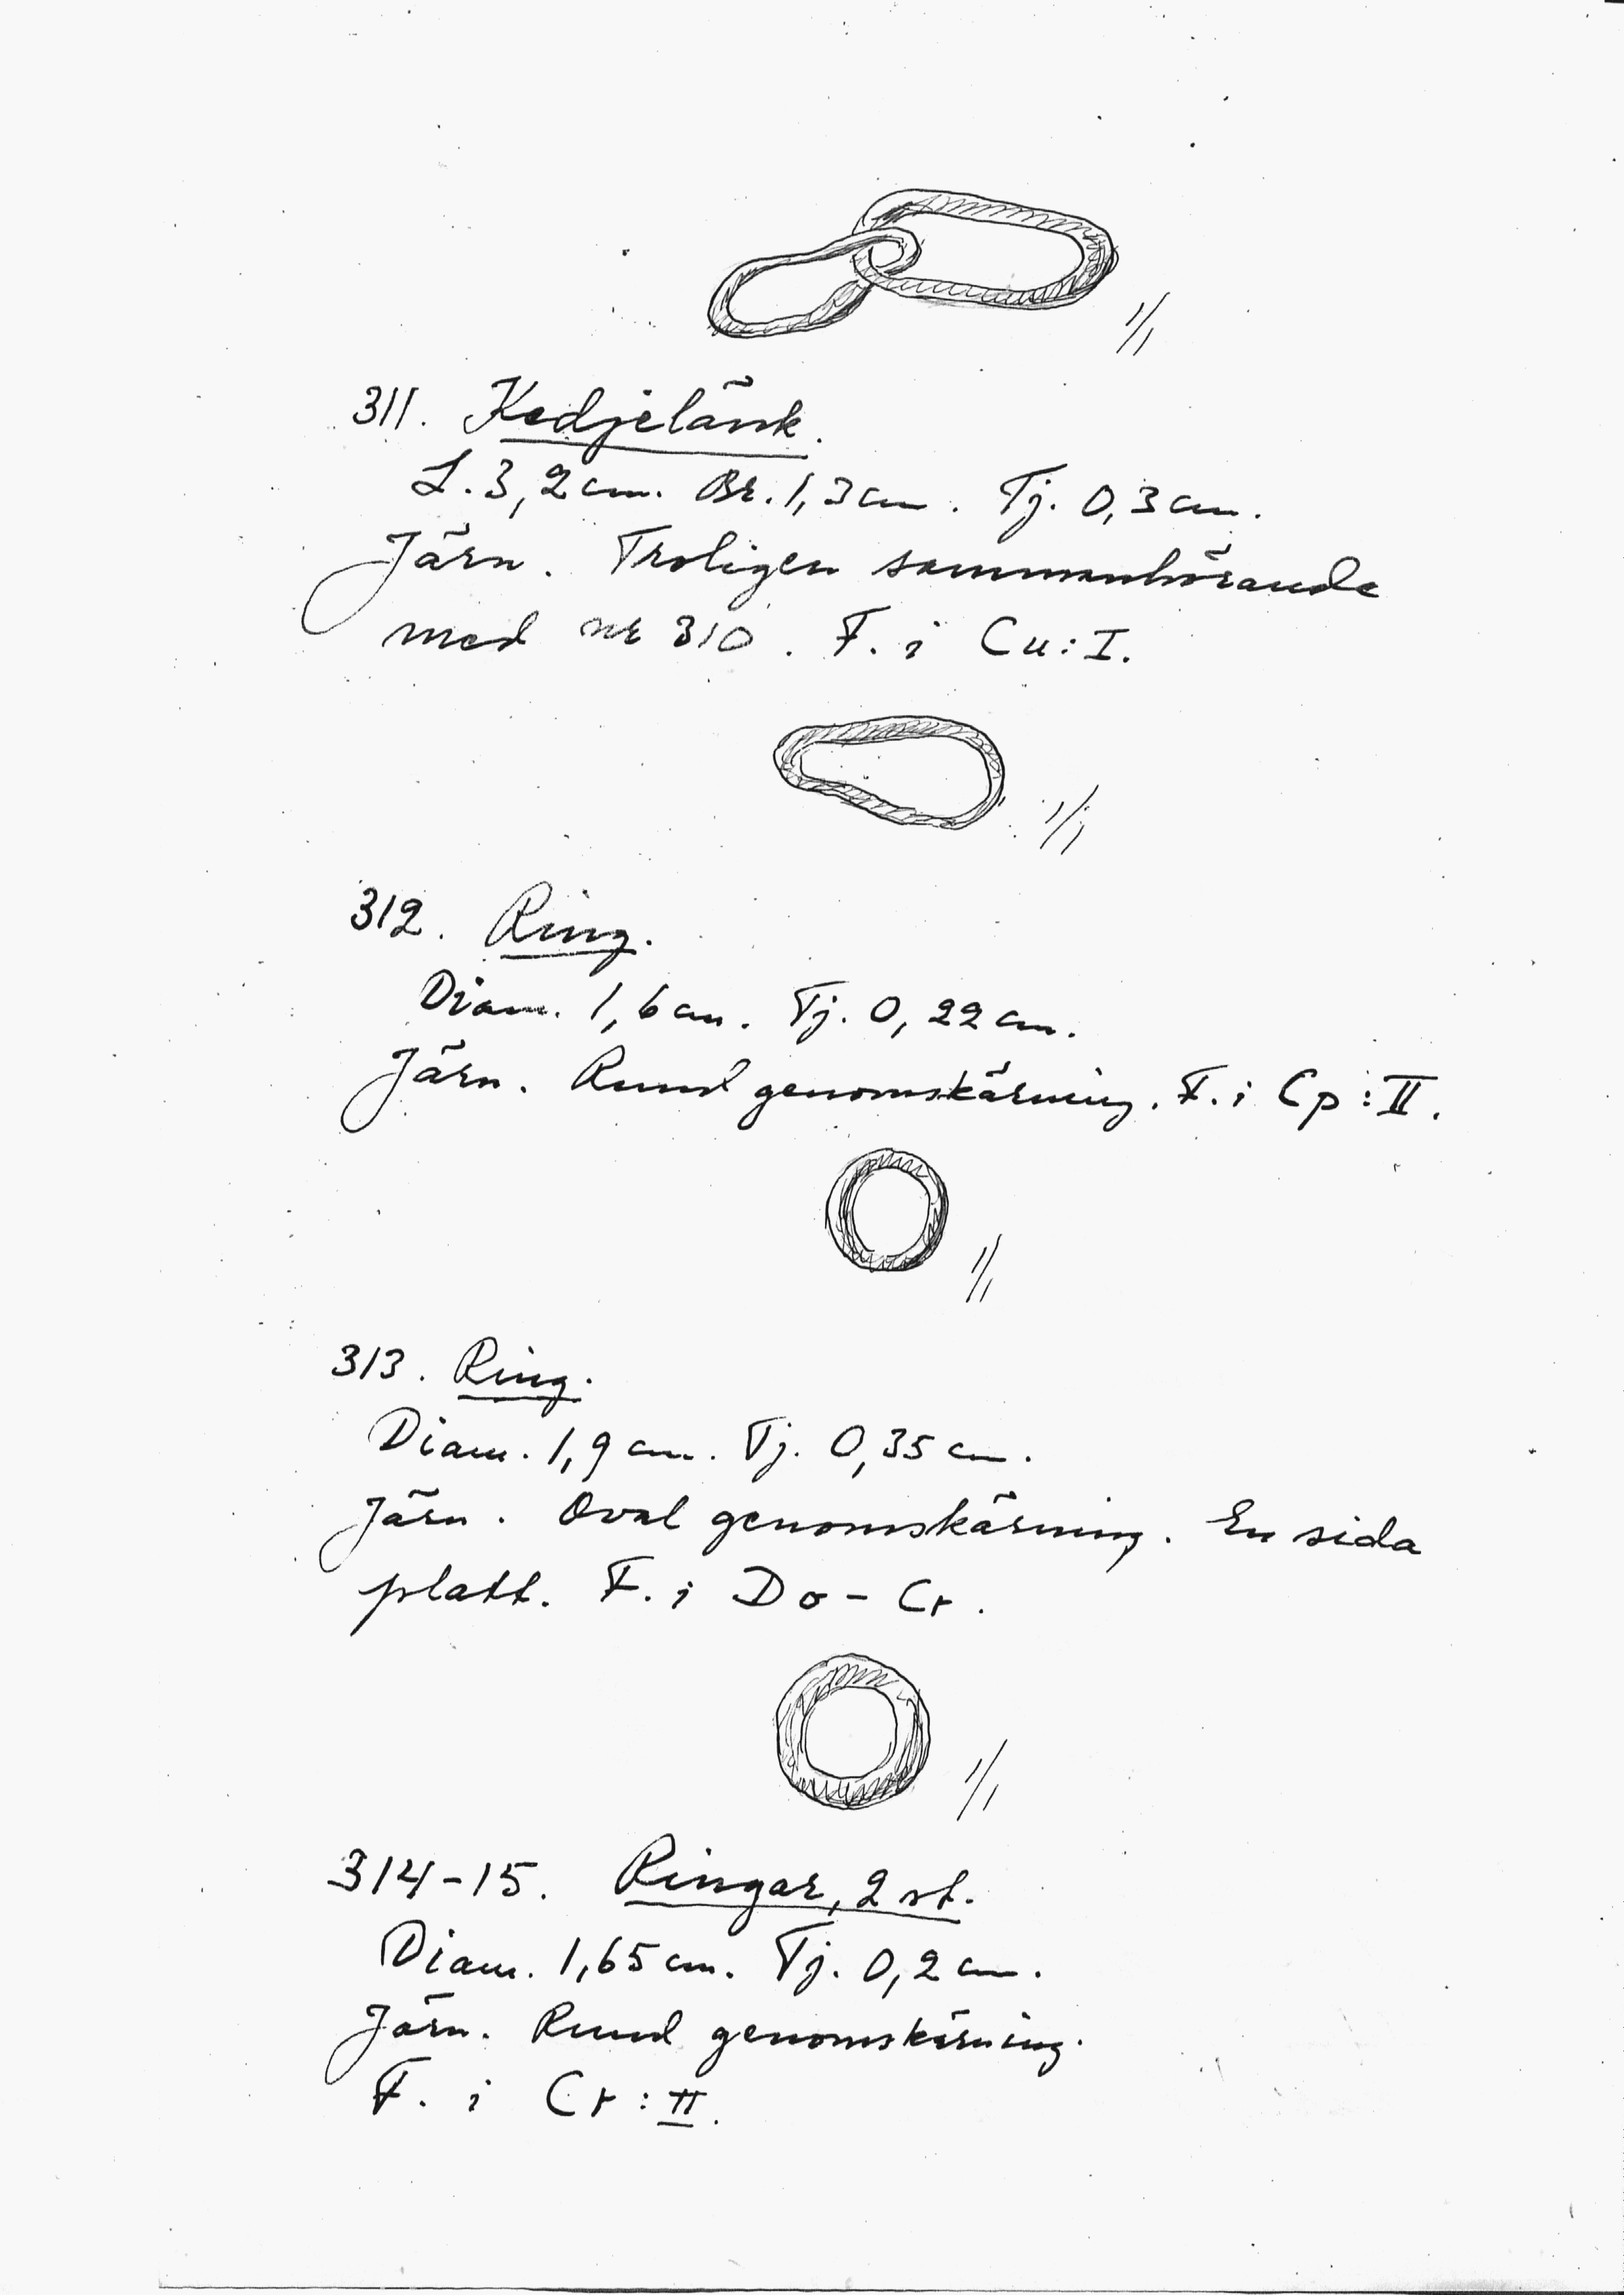 1/1
311. Kedjelänk.
L. 3,2 cm. Br. 1,3 cm. Tj. 0,3 cm.
Järn. Troligen sammanhörande
med nr 310. F. i Cu:I.
1/1
312. Ring.
Diam. 1,6 cm. Tj. 0,22 cm.
Järn. Rund genomskärning. F. i Cp:II.
1/1
313. Ring.
Diam. 1,9 cm. Tj. 0,35 cm.
Järn. Oval genomskärning. En sida
platt. F. i Do - Cr.
1/1
314-15. Ringar, 2 st.
Diam. 1,65 cm. Tj. 0,2 cm.
Järn. Rund genomskärning.
F. i Cr:II.